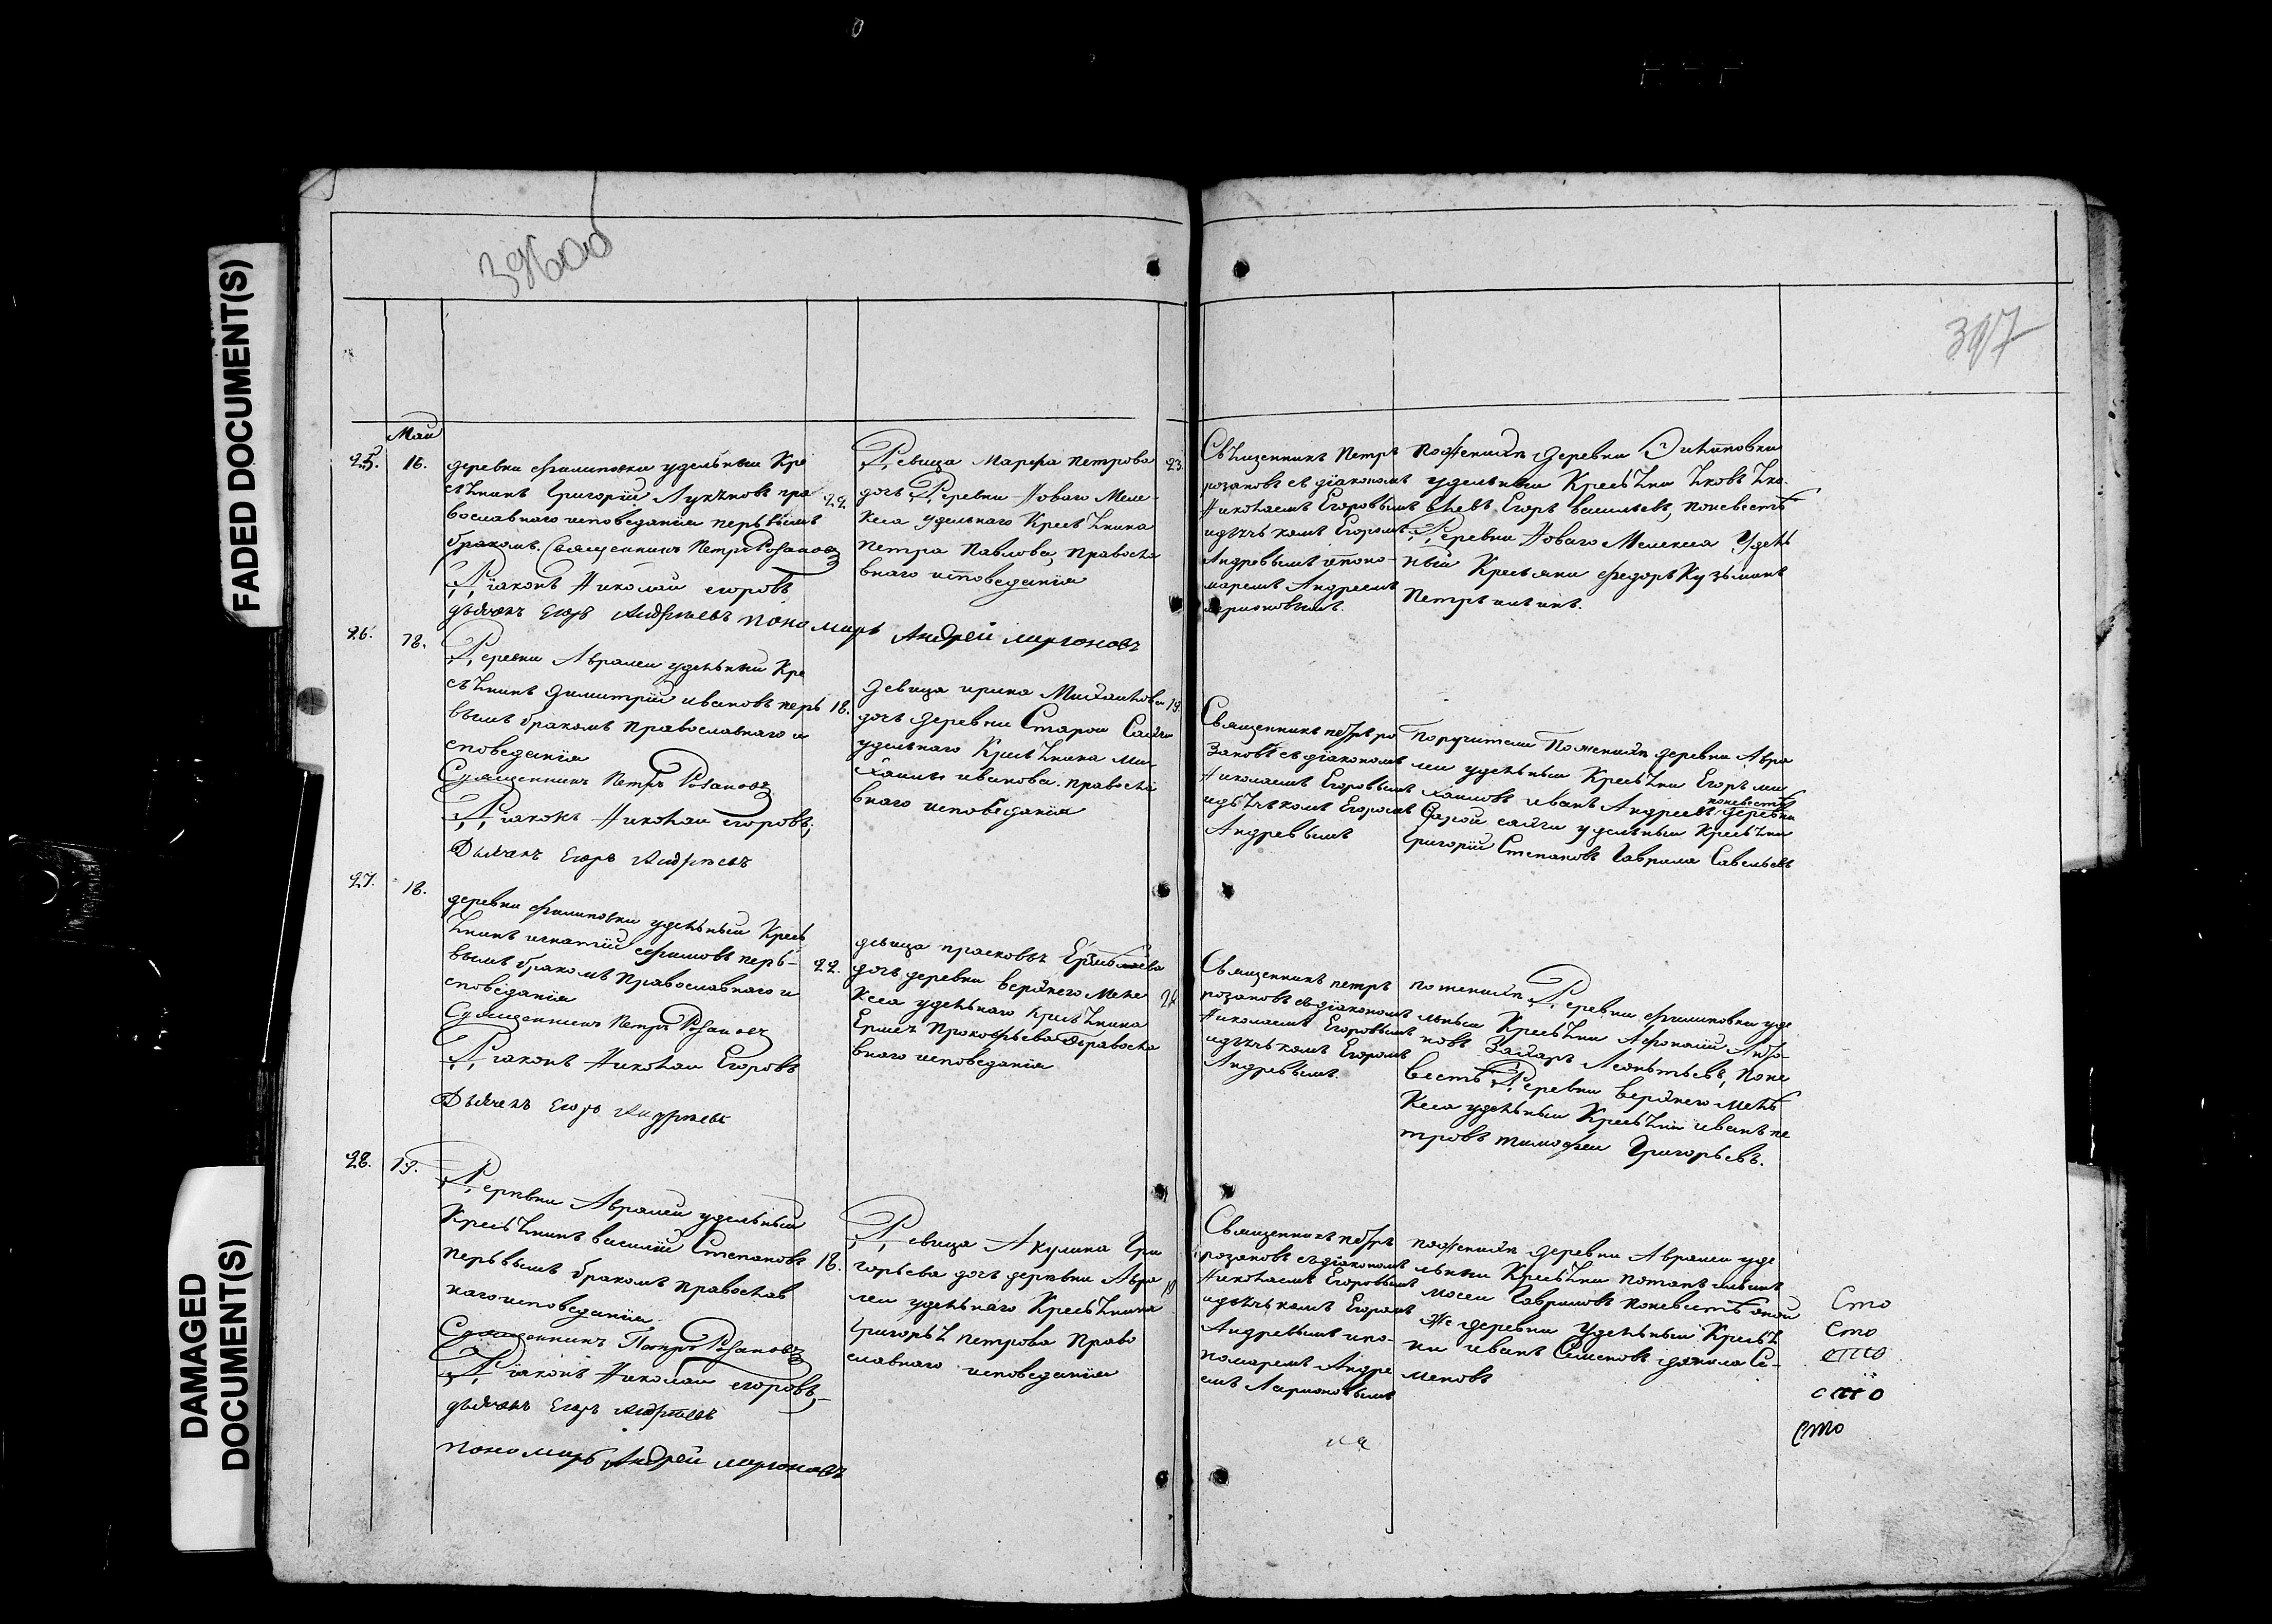 FADED DOCUMENT(S)
DAMAGED
DOCUMENT(S)
397
Май
25.
16.
деревни Филиповки удельный Кре
стьянинъ Григорій Лукяновъ пра
вославнаго исповеданія первымъ
бракомъ. Священникъ Петръ Розановъ
Діаконъ Николай егоровъ
дьячокъ Егоръ Андреевъ пономарь Андрей ларионовъ
22
Девица Марфа Петрова
дочь Деревни Новаго Меле-
кеса удельнаго Крестьянина
Петра Павлова, Правосла
внаго исповеданія
23.
Священникъ Петръ
розановъ съ діакономъ
Николаемъ Егоровымъ
идьячькомъ Егоромъ
Андревымъ ипоно-
маремъ Андреемъ
ларионовымъ.
Поженихѣ деревни Филиповки
удельныи Крестьяни Яковъ Яко-
влевъ Егоръ васильевъ, поневестѣ
Деревни Новаго Мелекеса Удель
ный Крестьяни Федоръ Кузьминъ
Петръ
26.
18.
Деревни Авралеи удельный Кре
стьянинъ Димитрій ивановъ пер
вымъ бракомъ Православнаго и
споведанія
Священникъ Петръ Розановъ
Діаконъ Николаи егоровъ,
Дьячекъ Егоръ Андреевъ
18.
девица ирина Михаилова
дочь деревни Старои Сахчи
удельнаго Крестьянина Ми-
хаилы иванова. правосла
внаго исповеданія
19.
Священникъ петръ ро
зановъ съ діакономъ
Николаемъ Егоровымъ
идьячькомъ Егоромъ
Андревымъ
Поручители Поженихѣ деревни Авра
леи удельныи Крестьяни Егоръ ми
хаиловъ иванъ Андреевъ, поневестѣ деревни
Старой сахчи удельныи Крестьяни
Григорій Степановъ Гаврила Савельевъ
27.
18.
деревни Филиповки удельный Кресть
янинъ игнатій ефимовъ пер-
вымъ бракомъ Православнаго и
споведанія
Священникъ Петръ Розановъ
Діаконъ Николаи Егоровъ
Дьячекъ Егоръ Андреевъ
22.
девица прасковья
дочь деревни верхнего Меле
кеса удельнаго Крестьянина
Прокофьева Правосла
внаго исповеданія
Священникъ петръ
розановъ съ діакономъ
Николаемъ Егоровымъ
идьячькомъ Егоромъ
Андревымъ.
поженихѣ Деревни Филиповки уде
льныи Крестьяни Афонасій Анто-
новъ Захаръ Леонтьевъ, Поне
вестѣ Деревни верхнего Меле
кеса удельныи Крестьяни иванъ пе
тровъ тимофеи Григорьевъ.
28.
19.
Деревни Авралеи удельный
Крестьянинъ василій Степановъ
первымъ бракомъ Православ
наго исповеданія.
Священникъ Петръ Розановъ
Діаконъ Николаи егоровъ,
дьячокъ Егоръ Андреевъ
пономарь Андрей ларионовъ
18.
Девица Акулина Гри
горьева дочь деревни Авра
леи удельнаго Крестьянина
Григорья петрова Право
славнаго исповеданія
19
Священникъ петръ
розановъ съ діакономъ
Николаемъ Егоровымъ
идьячькомъ Егоромъ
Андревымъ ипо-
номаремъ Андре
емъ Ларионовымъ
поженихѣ деревни Авралеи уде
льныи Крестьяни потапъ ильинъ
мосеи Гавриловъ поневестѣ оной
же деревни удельныи Крестья
ни иванъ Семеновъ данила Се-
меновъ
Сто
Сто
сто
сто
Сто